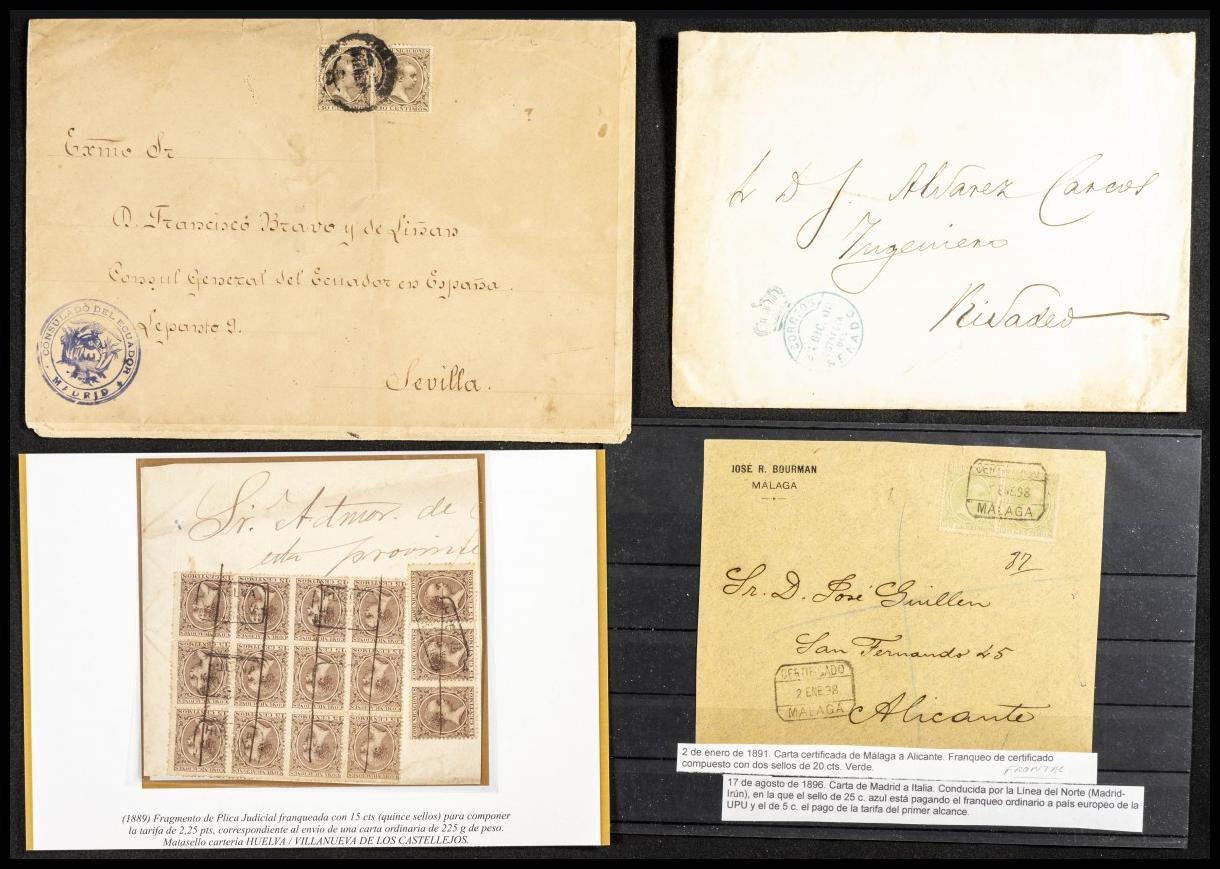 COMUNICACIONES
Exmo Sr
D. Francisco Bravo y de Liñan
Consul General del Ecuador en España.
Lepanto 9.
Sevilla.
CONSULADO DEL ECUADOR
MADRID
D J. Alvarez Carcos
Ingeniero
Rivadeo
CORREOS
DIC
SENADO
Sr. Admor. de
esta
JOSÉ R. BOURMAN
MÁLAGA
CERTIFICADO
ENE 98
MALAGA
37
Sr. D. José Guillen
San Fernando 45
Alicante
CERTIFICADO
2 ENE 98
MALAGA
2 de enero de 1891. Carta certificada de Málaga a Alicante. Franqueo de certificado
compuesto con dos sellos de 20 cts. Verde.
FRONTAL
17 de agosto de 1896. Carta de Madrid a Italia. Conducida por la Línea del Norte (Madrid-
Irún), en la que el sello de 25 c. azul está pagando el franqueo ordinario a país europeo de la
UPU y el de 5 c. el pago de la tarifa del primer alcance.
(1889) Fragmento de Plica Judicial franqueada con 15 cts (quince sellos) para componer
la tarifa de 2,25 pts, correspondiente al envío de una carta ordinaria de 225 g de peso.
Matasello cartería HUELVA / VILLANUEVA DE LOS CASTELLEJOS.